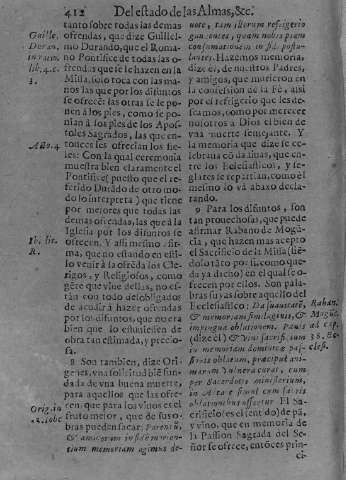 412 Del estado de las Almas, &c.
tanto sobre todas las demas
ofrendas, que dize Guillel-
mo Durando, que el Roma-
no Pontifice de todas las o-
frendas que se le hazen en la
Missa, solo toca con las ma-
nos las que por los difuntos
se ofrecẽ; las otras se le po-
nen à los pies, como se po-
niã à los pies de los Apos-
toles Sagrados, las que en-
tonces les ofrecian los fie-
les: Con la qual ceremonia
muestra bien claramente el
Pontifice (puesto que el re-
ferido Durãdo de otro mo-
do lo interpreta) que tiene
por mejores que todas las
demas ofrendas, las que à la
Iglesia por los difuntos se
ofrecen. Y assi mesmo afir-
ma, que no estando en esti-
lo venir à la ofrẽda los Cle-
rigos, y Religiosos, como
gẽte que viue dellas, no es-
tàn con todo desobligados
de acudir à hazer ofrendas
por los difuntos, que no era
bien que lo estuuiessen de
obra tan estimada, y precio-
sa.
8 Son tambien, dize Ori-
genes, vna solicitud biẽ fun-
dada de vna buena muerte,
para aquellos que las ofre-
cen: que para los viuos es el
fruto mejor, que de sus o-
bras pueden sacar.
tium memoriam agimus de-
Guille.
Duran.
lib. 4. c.
3.
Año. 4
Ib. lit.
R.
Orig. in
uote, tam illorum refrigerio
gaudentes, quam nobis piam
Hazemos memoria,
dize el, de nuestros Padres,
y amigos, que murieron en
la confession de la Fè, assi
por el refrigerio que les de-
seamos, como por merecer
nosotros a Dios el bien de
vna muerte semejante. Y
la memoria que dize se ce-
lebraua cõ dadiuas, que en-
tre los Eclesiasticos, y se-
glares se repartian, como el
mesmo lo và abaxo decla-
rando.
9 Para los difuntos, son
tan prouechosas, que puede
afirmar Rabano de Mogũ-
cia, que hazen mas acepto
el Sacrificio de la Missa (siẽ-
dolo tãto por si como que-
da ya dicho) en el qual se o-
frecen por ellos. Son pala-
bras suyas sobre aquello del
Eclesiastico:
& memoriam similaginis, &
impingua oblationem.
(dize el)
in memoriam dominicæ pas-
sionis oblatum, præcipuè ani-
marum vulnera curat, cum
per Sacerdotis ministerium,
in Ara
oblationibus offertur. El Sa-
crificio (es el sentido) de pã,
y vino, que en memoria de
la Passion Sagrada del Se-
ñor se ofrece, entõces prin-
ci-
Raban.
Mogũt.
ad cap.
38. Ec-
clesi.